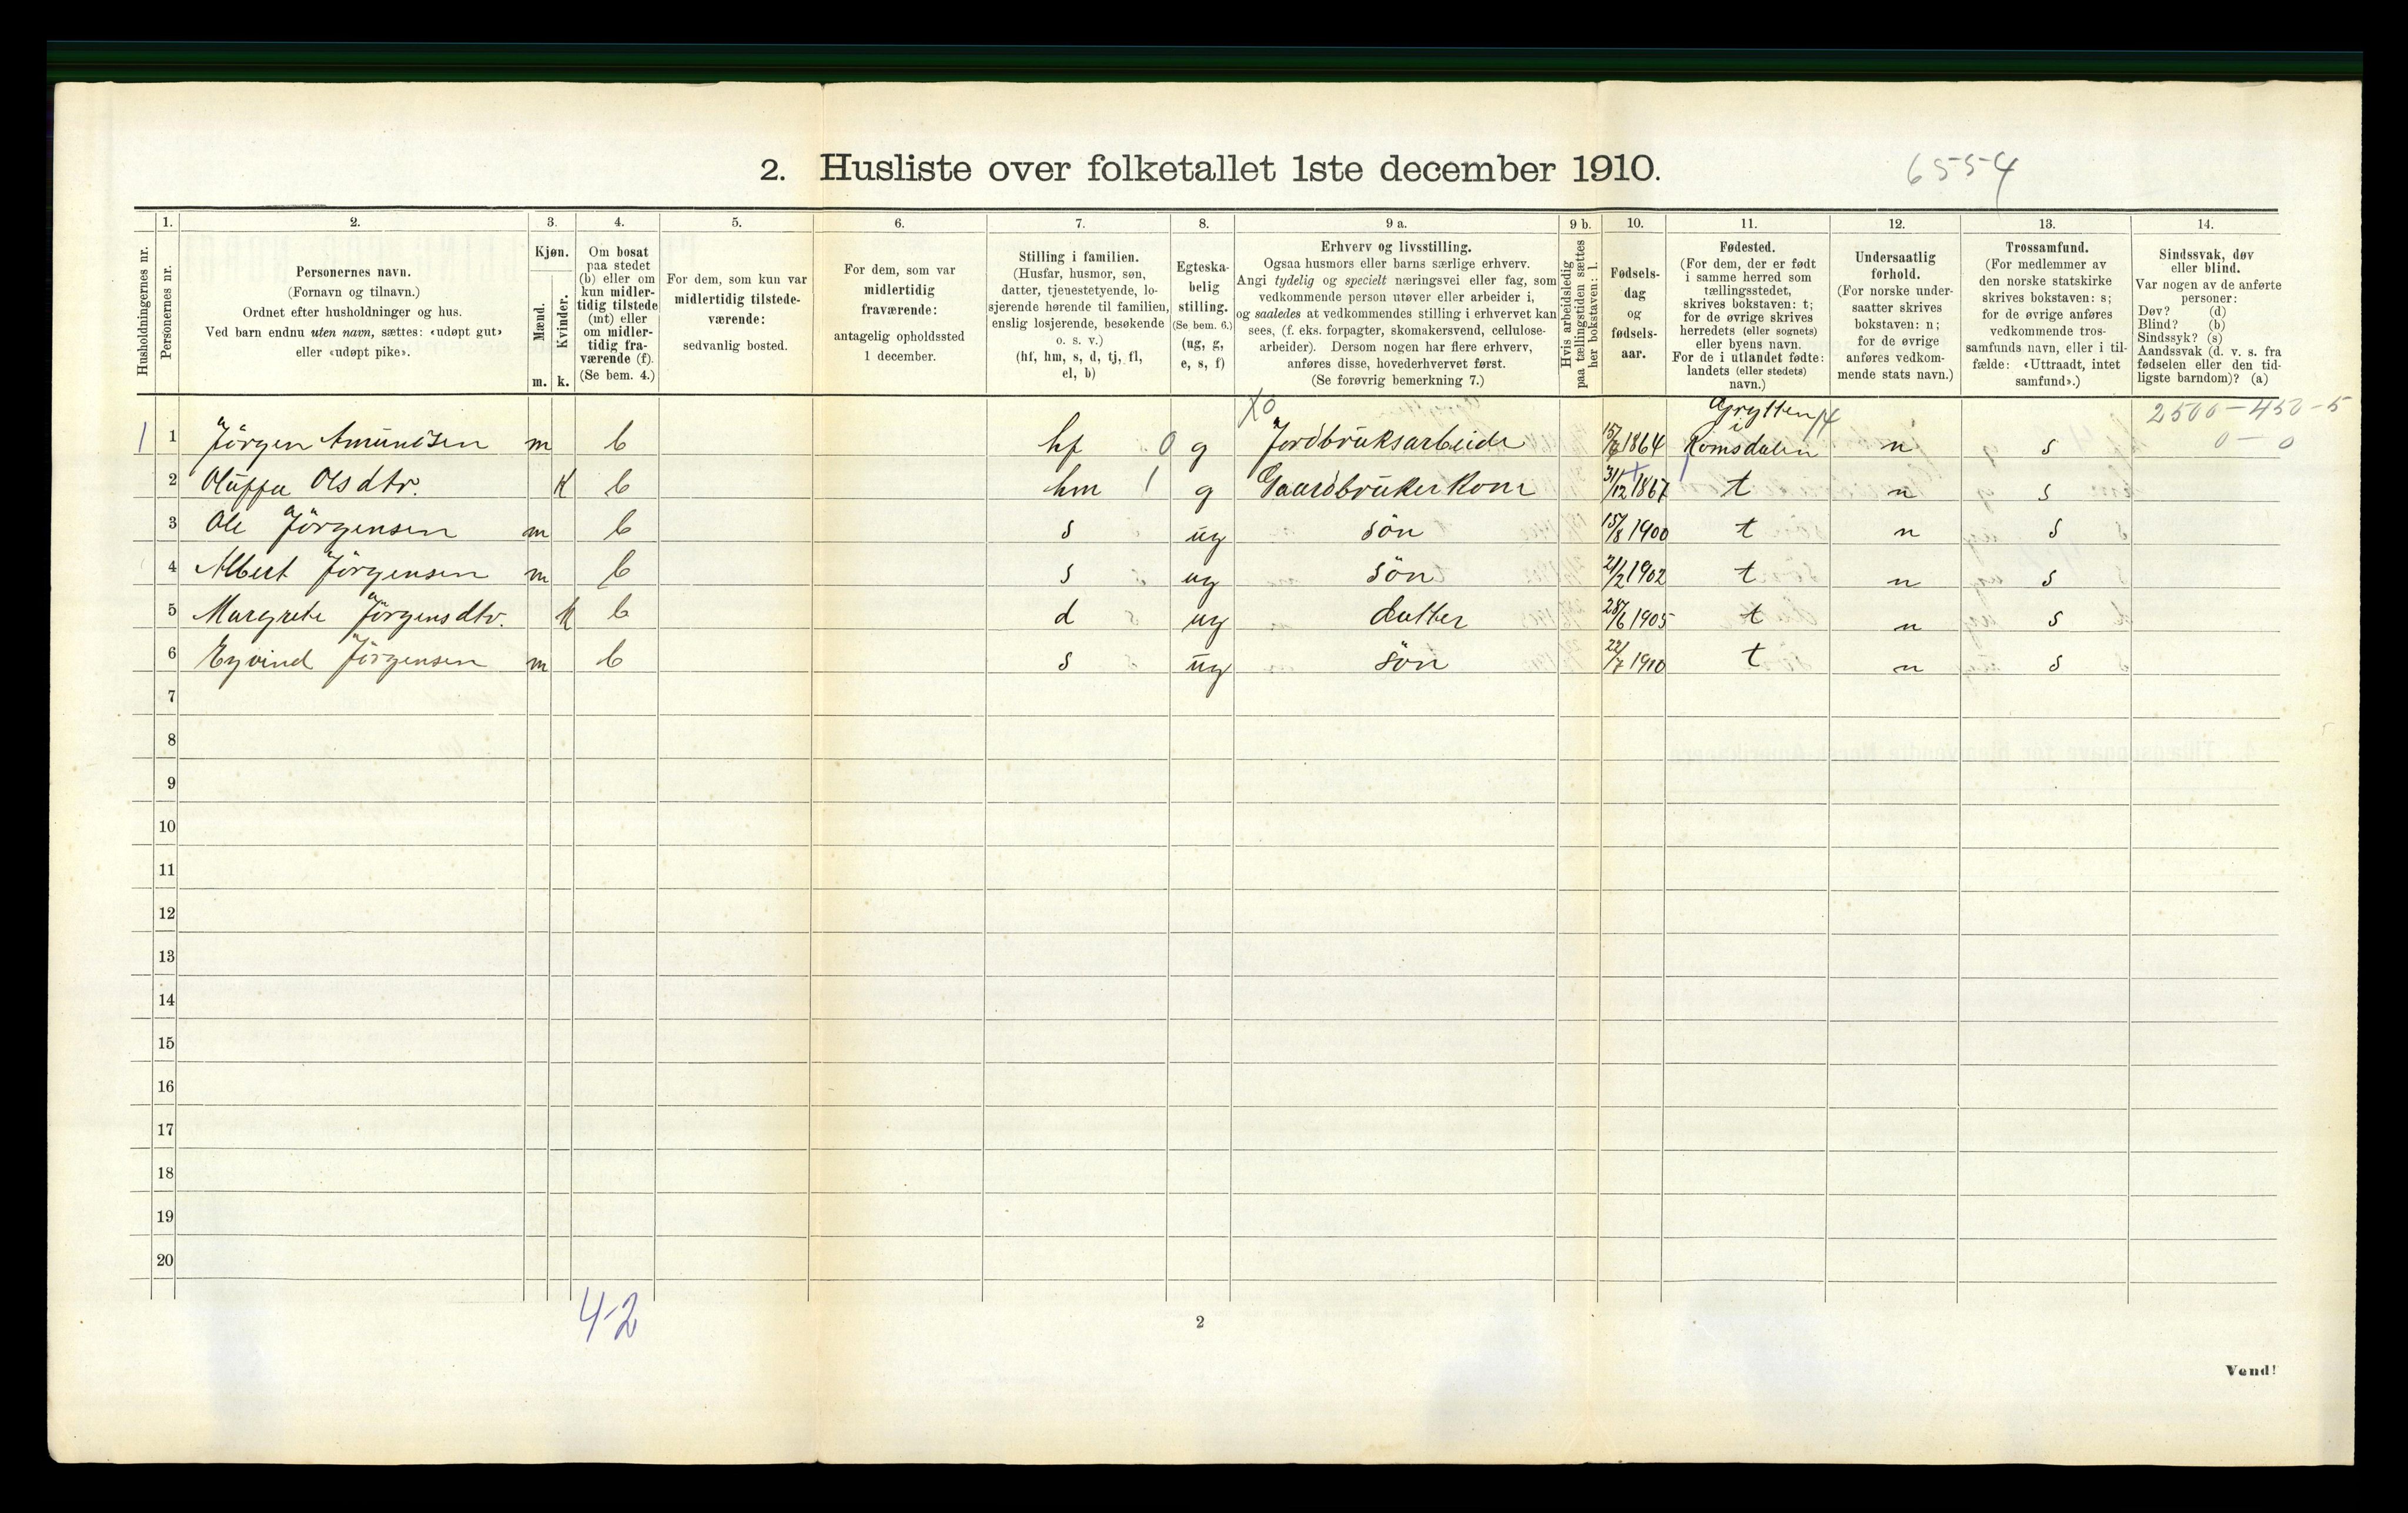 2. Husliste over folketallet 1ste december 1910.
6554
Husholdningernes nr.
1.
Personernes nr.
2.
Personernes navn.
(Fornavn og tilnavn.)
Ordnet efter husholdninger og hus.
Ved barn endnu uten navn, sættes: «udøpt gut»
eller «udøpt pike».
3.
Kjøn.
Mænd.
Kvinder.
m. k.
4.
Om bosat
paa stedet
(b) eller om
kun midler-
tidig tilstede
(mt) eller
om midler-
tidig fra-
værende (f).
(Se bem. 4.)
5.
For dem, som kun var
midlertidig tilstede-
værende:
sedvanlig bosted.
6.
For dem, som var
midlertidig
fraværende:
antagelig opholdssted
1 december.
7.
Stilling i familien.
(Husfar, husmor, søn,
datter, tjenestetyende, lo-
sjerende hørende til familien,
enslig losjerende, besøkende
o. s. v.)
(hf, hm, s, d, tj, fl,
el, b)
8.
Egteska-
belig
stilling.
(Se bem. 6.)
(ug, g,
e, s, f)
9 a.
Erhverv og livsstilling.
Ogsaa husmors eller barns særlige erhverv.
Angi tydelig og specielt næringsvei eller fag, som
vedkommende person utøver eller arbeider i,
og saaledes at vedkommendes stilling i erhvervet kan
sees, (f. eks. forpagter, skomakersvend, cellulose-
arbeider). Dersom nogen har flere erhverv,
anføres disse, hovederhvervet først.
(Se forøvrig bemerkning 7.)
9 b.
Hvis arbeidsledig
paa tællingstiden sættes
her bokstaven: l.
10.
Fødsels-
dag
og
fødsels-
aar.
11.
Fødested.
(For dem, der er født
i samme herred som
tællingsstedet,
skrives bokstaven: t;
for de øvrige skrives
herredets (eller sognets)
eller byens navn.
For de i utlandet fødte:
landets (eller stedets)
navn.)
12.
Undersaatlig
forhold.
(For norske under-
saatter skrives
bokstaven: n;
for de øvrige
anføres vedkom-
mende stats navn.)
13.
Trossamfund.
(For medlemmer av
den norske statskirke
skrives bokstaven: s;
for de øvrige anføres
vedkommende tros-
samfunds navn, eller i til-
fælde: «Uttraadt, intet
samfund».)
14.
Sindssvak, døv
eller blind.
Var nogen av de anførte
personer:
Døv? (d)
Blind? (b)
Sindssyk? (s)
Aandssvak (d. v. s. fra
fødselen eller den tid-
ligste barndom)? (a)
X0 Grytten 14 2500-450-5
1 1 Jörgen Amundsen m b hf 0 g Jordbruksarbeide 1864 i Romsdalen n s 0-0
2 Oluffa Olsdtr. k b hm 1 g Gaardbrukerkone 31/12 1867 t n s
3 Ole Jörgensen m b s ug sön 15/8 1900 t n s
4 Albert Jörgensen m b s ug sön 21/2 1902 t n s
5 Margrete Jörgensdtr. k b d ug datter 28/6 1905 t n s
6 Eyvind Jörgensen m b s ug sön 22/7 1910 t n s
7
8
9
10
11
12
13
14
15
16
17
18
19
20
4-2
2
Vend!